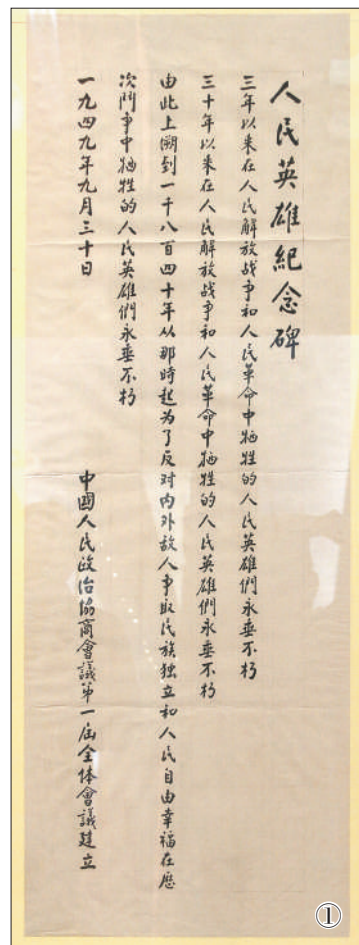 人民英雄紀念碑
三年以来在人民解放战争和人民革命中牺牲的人民英雄們永垂不朽
三十年以来在人民解放战争和人民革命中牺牲的人民英雄們永垂不朽
由此上溯到一千八百四十年从那時起为了反对内外敌人争取民族独立和人民自由幸福在歷
次鬥争中牺牲的人民英雄們永垂不朽
一九四九年九月三十日
中國人民政治協商會議第一届全体會議建立
①